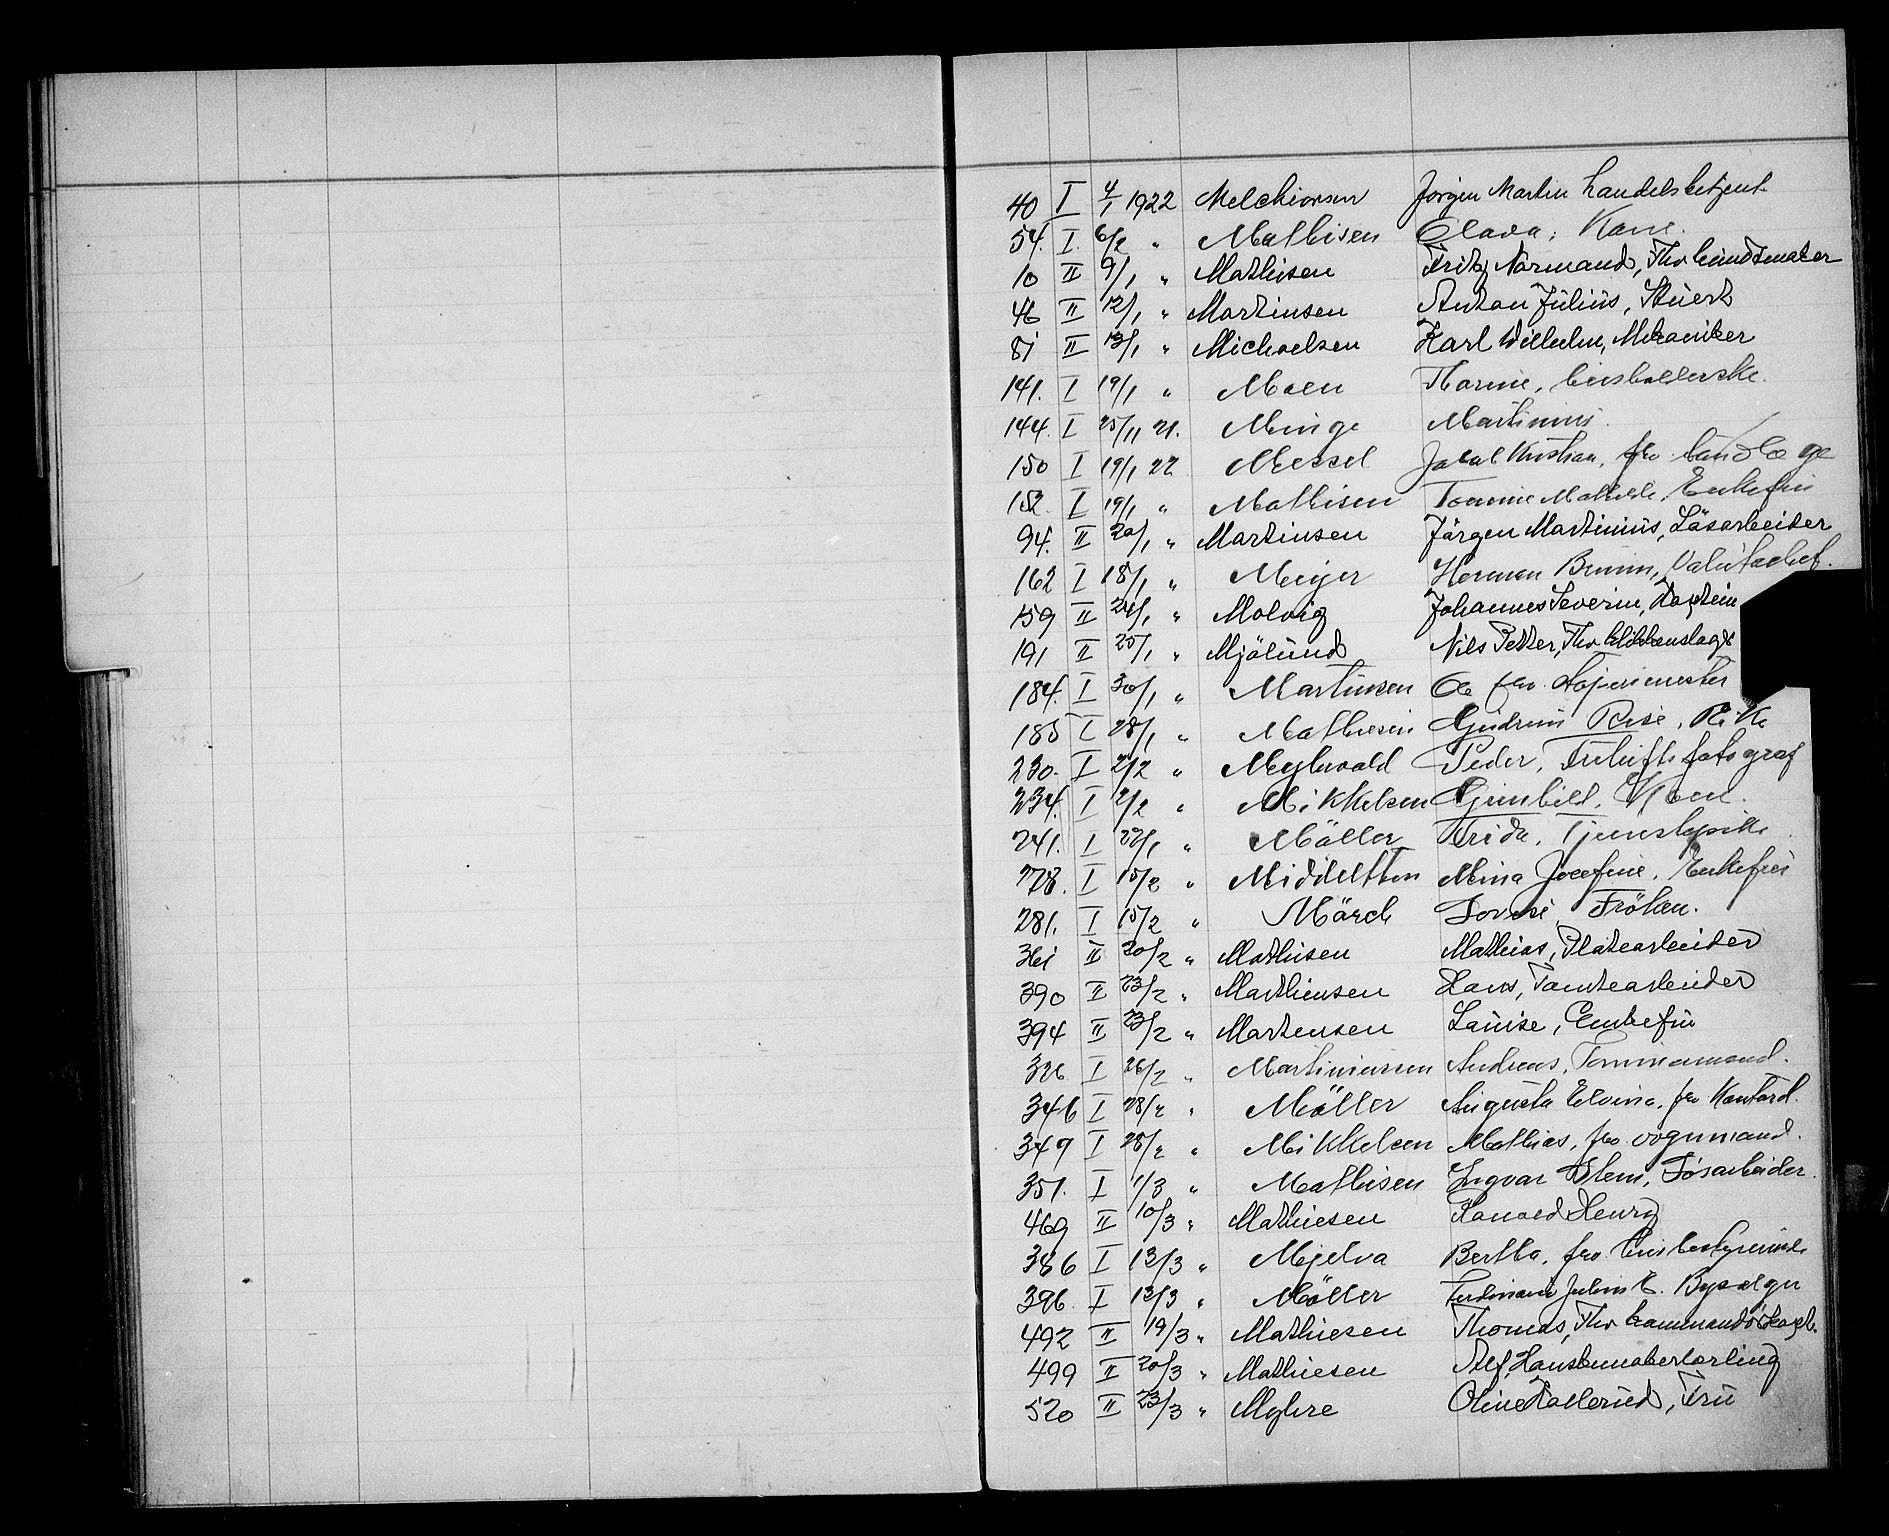 40 I 4/1 1922 Melchiorsen Jørgen Martin Handelsbetjent
54. I. 6/2 " Mathisen Olava, Kone.
10 II 9/1 " Mathisen Fritz Normand, Fhv bundtmaker
46 II 12/1 " Martinsen Anton Julius, Stuert
81 II 13/1 " Michaelsen Karl Wilhelm, Mekaniker
141. I 19/1 " Moen Thorine, husholderske.
144. I 25/11 21. Minge Martinius.
150 I 19/1 22 Messel Jacob Kristian, fhv. tandlæge
152. I 19/1 " Mathisen Mathilde, Enkefru
94. II 20/1 " Martinsen Jørgen Martinius, Løsarbeider
162 I 18/1 " Meyer Herman Bruun, Valutachef.
159 II 24/1 " Molvig Johannes Severin, Kaptein
191 II 25/1 " Mjölund Nils Petter, Fhv blikkenslager
184. I 30/1 " Martinsen Ole fhv. Stuperimester
185 I 28/1 " Mathiesen Gudrun Rise, Pike
230. I 2/2 " Meyhwald Peder, Friluftsfotograf
234. I 2/2 " Mikkelsen Grimhild, Kone.
241. I 22/1 " Möller Frida, Tjenstepike
278. I 15/2 " Middeltton Mina Josefine, Enkefru
281. I 15/2 " Mörch Lovise, Fröken.
361 II 20/2 " Mathisen Mathias, Platearbeider
390 II 23/2 " Marthinsen Hans, Tomtearbeider
394 II 23/2 " Martensen Louise, Enkefru
326 I 26/2 " Martiniussen Andreas, Tømmermand.
346 I 28/2 " Möller Augusta Elvina, fhv Kontord.
349 I 28/2 " Mikkelsen Mathias, fhv. vognmand.
351. I 1/3 " Mathisen Ingvar Løsarbeider.
469 II 10/3 " Mathiesen Harald Henry
386 I 13/3 " Mjelva Bertha, fhv. husbestyrerinde
396. I 13/3 " Möller Ferdinand Julius E. Bysælger
492 II 19/3 " Mathiesen Thomas, Fhv kommandørkapt.
499 II 20/3 " Mathiesen Alf, Hanskemakerlærling
520 II 23/3 " Myhre Oline Hallerud, Fru